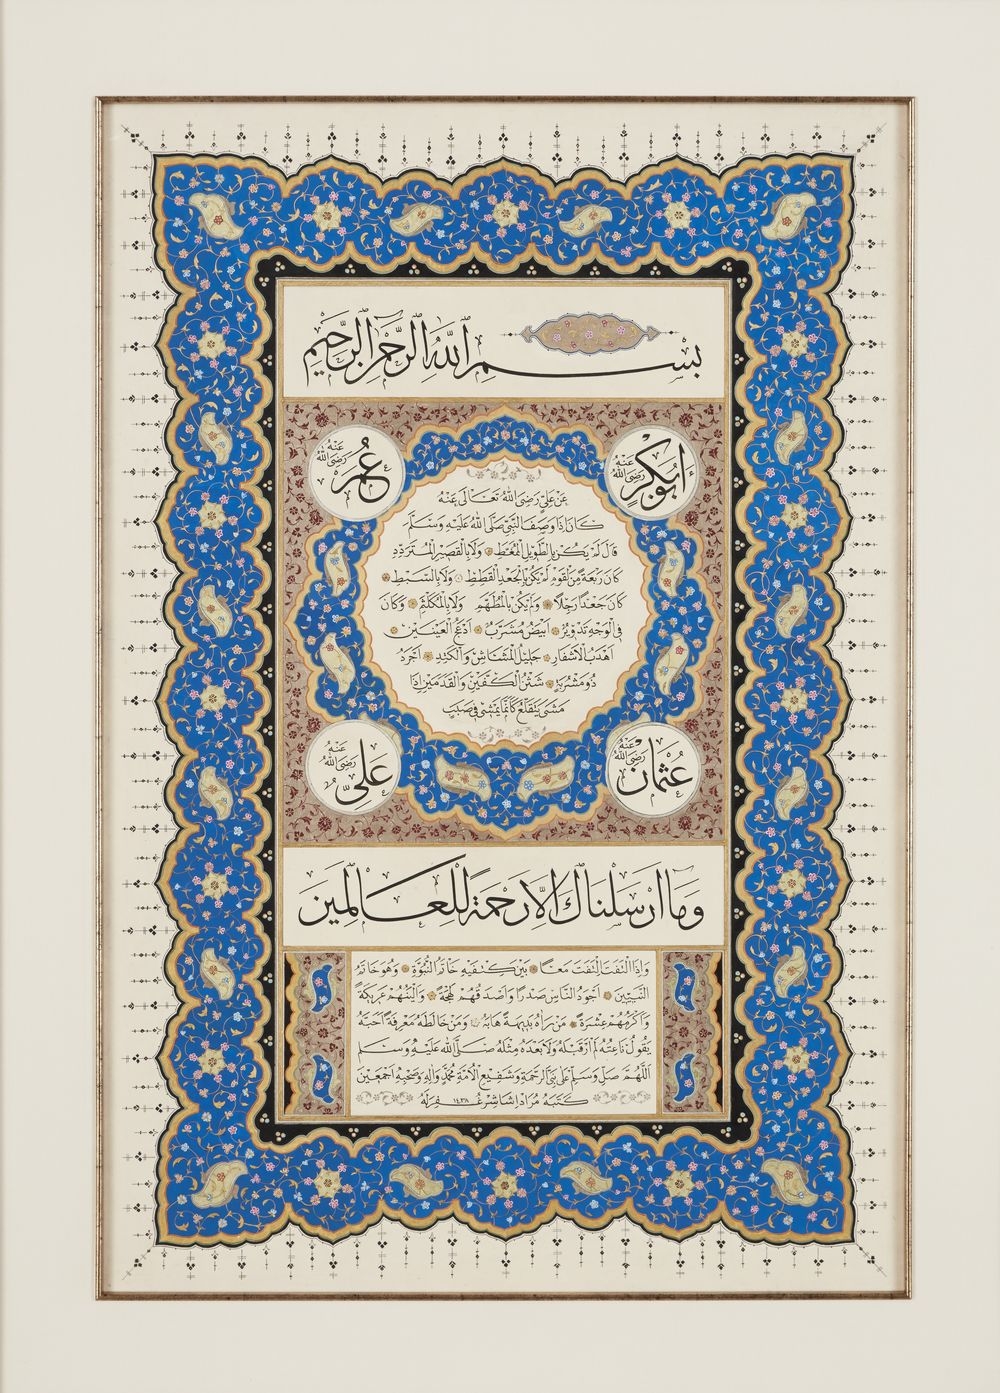 بسم الله الرحمن الرحيم
أبو بكر رضي الله عنه
عمر رضي الله عنه
عن علي رضي الله تعالى عنه
كان إذا وصف النبي صلى الله عليه وسلم
قال لم يكن بالطويل الممغط ولا بالقصير المتردد
كان ربعة من القوم لم يكن بالجعد القطط ولا بالسبط
كان جعدا رجلا ولم يكن بالمطهم ولا بالمكلثم وكان
في الوجه تدوير أبيض مشرب أدعج العينين
أهدب الأشفار جليل المشاش والكتد أجرد
ذو مسربة شثن الكفين والقدمين إذا
مشى يتقلع كأنما يمشي في صبب
عثمان رضي الله عنه
علي رضي الله عنه
وما أرسلناك إلا رحمة للعالمين
وإذا التفت التفت معا بين كتفيه خاتم النبوة وهو خاتم
النبيين أجود الناس صدرا وأصدقهم لهجة وألينهم عريكة
وأكرمهم عشرة من رآه بديهة هابه ومن خالطه معرفة أحبه
يقول ناعته لم أر قبله ولا بعده مثله صلى الله عليه وسلم
اللهم صل وسلم على نبي الرحمة وشفيع الأمة محمد وآله وصحبه أجمعين
كتبه ١٤٣٨ غفر له